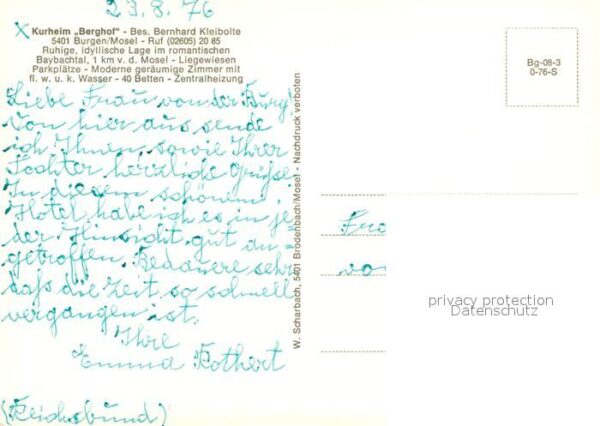 23.8.76
X Kurheim „Berghof" - Bes. Bernhard Kleibolte
5401 Burgen/Mosel - Ruf (02605) 20 85
Ruhige, idyllische Lage im romantischen
Baybachtal, 1 km v. d. Mosel - Liegewiesen
Parkplätze - Moderne geräumige Zimmer mit
fl. w. u. k. Wasser - 40 Betten - Zentralheizung
Liebe Frau von der Burg!
Von hier aus sende
ich Ihnen sowie Ihrer
Tochter herzliche Grüße.
In diesem schönem
Hotel habe ich es in je=
der Hinsicht gut an=
getroffen. Bedauere sehr
daß die Zeit so schnell
vergangen ist.
Ihre
Emma Rothert
(Reichsbund)
W. Scharbach, 5401 Brodenbach/Mosel - Nachdruck verboten
Bg-08-3
0-76-S
Fra
vo
privacy protection
Datenschutz